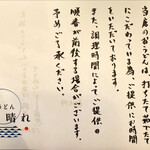 当店のおうどんは、打ちたて茹でたて
にこだわっている為、ご提供にお時間
をいただいております。
また、調理時間によってご提供の
順番が前後する場合がございます。
予めご了承ください。
うどん
晴れ